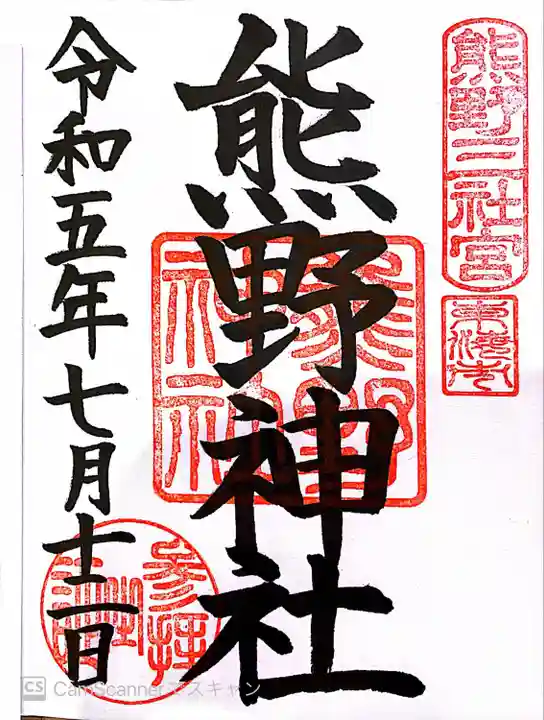 熊野神社
熊野神社
令和五年七月十二日
参拝
CS CamScannerでスキャン